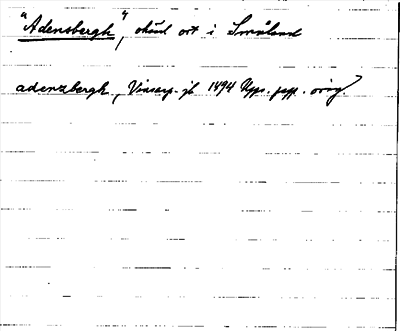 "Adensbergh", okänd ort i Småland
adenzbergh, Vinsarp. jb 1494 Upps. papp. orig.